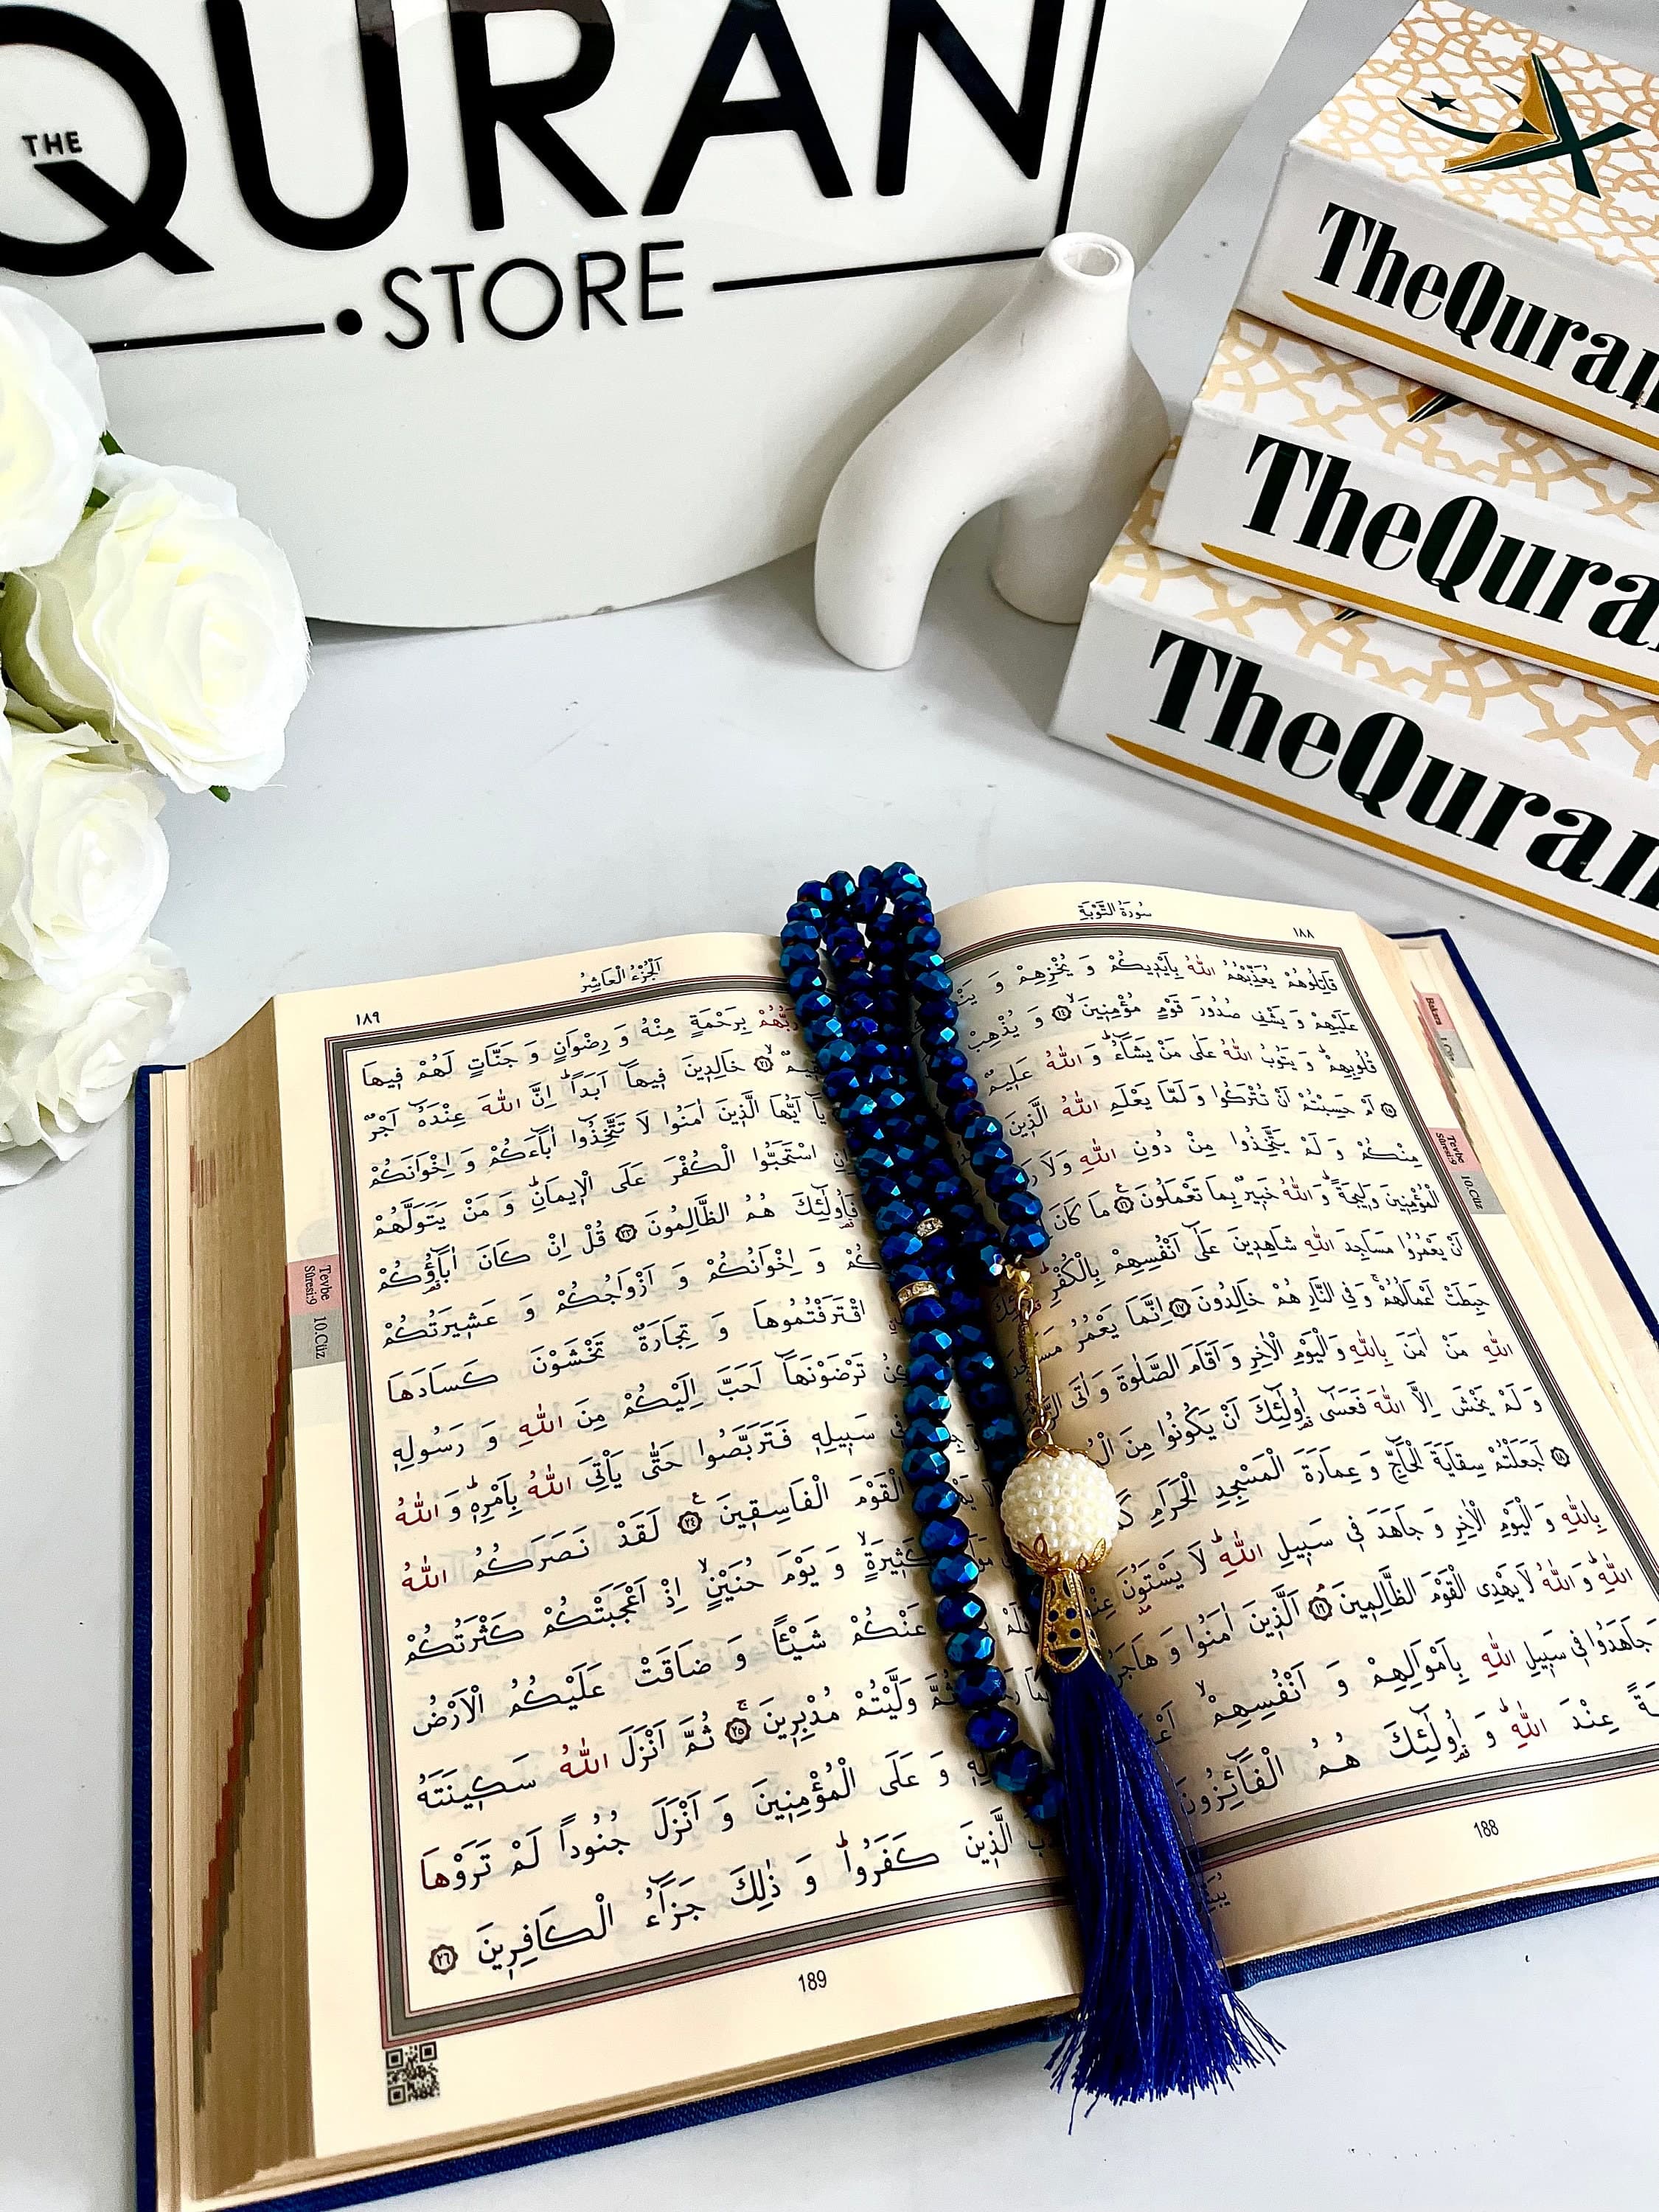 THE QURAN
STORE
TheQuran
TheQuran
TheQuran
سُورَةُ التَّوْبَةِ
١٨٨
قَاتِلُوهُمْ يُعَذِّبْهُمُ اللّٰهُ بِاَيْدِيكُمْ وَ يُخْزِهِمْ وَ
عَلَيْهِمْ وَ يَشْفِ صُدُورَ قَوْمٍ مُؤْمِنِينَۙ ﴿١٤﴾ وَ يُذْهِبْ
قُلُوبِهِمْۜ وَ يَتُوبُ اللّٰهُ عَلٰى مَنْ يَشَٓاءُۜ وَ اللّٰهُ عَلِيمٌ
﴿١٥﴾ اَمْ حَسِبْتُمْ اَنْ تُتْرَكُوا وَ لَمَّا يَعْلَمِ اللّٰهُ الَّذِينَ
مِنْكُمْ وَ لَمْ يَتَّخِذُوا مِنْ دُونِ اللّٰهِ وَلَا
الْمُؤْمِنِينَ وَلِيجَةًۜ وَ اللّٰهُ خَبِيرٌ بِمَا تَعْمَلُونَ۟ ﴿١٦﴾ مَا كَانَ
اَنْ يَعْمُرُوا مَسَاجِدَ اللّٰهِ شَاهِدِينَ عَلٰٓى اَنْفُسِهِمْ بِالْكُفْرِۜ
حَبِطَتْ اَعْمَالُهُمْۚ وَ فِي النَّارِ هُمْ خَالِدُونَ ﴿١٧﴾ اِنَّمَا يَعْمُرُ
اللّٰهِ مَنْ اٰمَنَ بِاللّٰهِ وَ الْيَوْمِ الْاٰخِرِ وَ اَقَامَ الصَّلٰوةَ وَ اٰتَى
وَ لَمْ يَخْشَ اِلَّا اللّٰهَ فَعَسٰٓى اُو۬لٰٓئِكَ اَنْ يَكُونُوا مِنَ
﴿١٨﴾ اَجَعَلْتُمْ سِقَايَةَ الْحَٓاجِّ وَ عِمَارَةَ الْمَسْجِدِ الْحَرَامِ
بِاللّٰهِ وَ الْيَوْمِ الْاٰخِرِ وَ جَاهَدَ فِي سَبِيلِ اللّٰهِۜ لَا يَسْتَوُ۫نَ
اللّٰهِۜ وَ اللّٰهُ لَا يَهْدِي الْقَوْمَ الظَّالِمِينَۢ ﴿١٩﴾ اَلَّذِينَ اٰمَنُوا وَ
جَاهَدُوا فِي سَبِيلِ اللّٰهِ بِاَمْوَالِهِمْ وَ اَنْفُسِهِمْۙ
عِنْدَ اللّٰهِۜ وَ اُو۬لٰٓئِكَ هُمُ الْفَٓائِزُونَ
188
Tevbe
Sûresi:9
10.Cüz
اَلْجُزْءُ الْعَاشِرُ
١٨٩
رَبُّهُمْ بِرَحْمَةٍ مِنْهُ وَ رِضْوَانٍ وَ جَنَّاتٍ لَهُمْ فِيهَا
﴿٢١﴾ خَالِدِينَ فِيهَٓا اَبَداًۜ اِنَّ اللّٰهَ عِنْدَهُٓ اَجْرٌ
يَٓا اَيُّهَا الَّذِينَ اٰمَنُوا لَا تَتَّخِذُٓوا اٰبَٓاءَكُمْ وَ اِخْوَانَكُمْ
اسْتَحَبُّوا الْكُفْرَ عَلَى الْاِيمَانِۜ وَ مَنْ يَتَوَلَّهُمْ
فَاُو۬لٰٓئِكَ هُمُ الظَّالِمُونَ ﴿٢٣﴾ قُلْ اِنْ كَانَ اٰبَٓاؤُ۬كُمْ
وَ اِخْوَانُكُمْ وَ اَزْوَاجُكُمْ وَ عَشِيرَتُكُمْ
اقْتَرَفْتُمُوهَا وَ تِجَارَةٌ تَخْشَوْنَ كَسَادَهَا
تَرْضَوْنَهَٓا اَحَبَّ اِلَيْكُمْ مِنَ اللّٰهِ وَ رَسُولِهِ
سَبِيلِهِ فَتَرَبَّصُوا حَتّٰى يَأْتِيَ اللّٰهُ بِاَمْرِهِۜ وَ اللّٰهُ
الْقَوْمَ الْفَاسِقِينَ۟ ﴿٢٤﴾ لَقَدْ نَصَرَكُمُ اللّٰهُ
كَثِيرَةٍۙ وَ يَوْمَ حُنَيْنٍۙ اِذْ اَعْجَبَتْكُمْ كَثْرَتُكُمْ
عَنْكُمْ شَيْـٔاً وَ ضَاقَتْ عَلَيْكُمُ الْاَرْضُ
وَلَّيْتُمْ مُدْبِرِينَۚ ﴿٢٥﴾ ثُمَّ اَنْزَلَ اللّٰهُ سَكِينَتَهُ
وَ عَلَى الْمُؤْمِنِينَ وَ اَنْزَلَ جُنُوداً لَمْ تَرَوْهَا
الَّذِينَ كَفَرُواۜ وَ ذٰلِكَ جَزَٓاءُ الْكَافِرِينَ ﴿٢٦﴾
189
Tevbe
Sûresi:9
10.Cüz